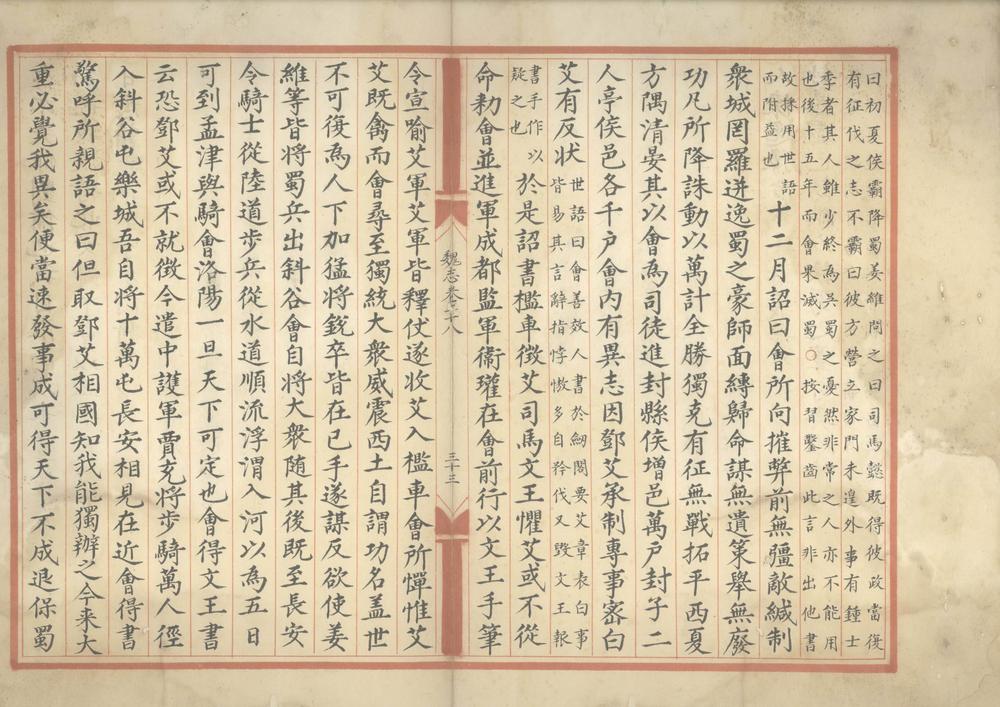 曰初夏侯霸降蜀姜維問之曰司馬懿既得彼政當復
有征伐之志不霸曰彼方營立家門未遑外事有鍾士
季者其人雖少終為吳蜀之憂然非常之人亦不能用
也後十五年而會果滅蜀○按習鑿齒此言非出他書
故採用世語
而附益也
十二月詔曰會所向摧弊前無彊敵緘制
衆城罔羅迸逸蜀之豪帥面縛歸命謀無遺策舉無廢
功凡所降誅動以萬計全勝獨克有征無戰拓平西夏
方隅清晏其以會為司徒進封縣侯增邑萬戶封子二
人亭侯邑各千戶會內有異志因鄧艾承制專事密白
艾有反狀
世語曰會善效人書於劒閣要艾章表白事
皆易其言辭指悖慠多自矜伐又毀文王報
書手作以
疑之也
於是詔書檻車徵艾司馬文王懼艾或不從
命勑會並進軍成都監軍衞瓘在會前行以文王手筆
魏志卷二十八
三十三
令宣喻艾軍艾軍皆釋仗遂收艾入檻車會所憚惟艾
艾既禽而會尋至獨統大衆威震西土自謂功名蓋世
不可復為人下加猛將銳卒皆在已手遂謀反欲使姜
維等皆將蜀兵出斜谷會自將大衆随其後既至長安
令騎士從陸道步兵從水道順流浮渭入河以為五日
可到孟津與騎會洛陽一旦天下可定也會得文王書
云恐鄧艾或不就徵今遣中護軍賈充將步騎萬人徑
入斜谷屯樂城吾自將十萬屯長安相見在近會得書
驚呼所親語之曰但取鄧艾相國知我能獨辦之今来大
重必覺我異矣便當速發事成可得天下不成退保蜀